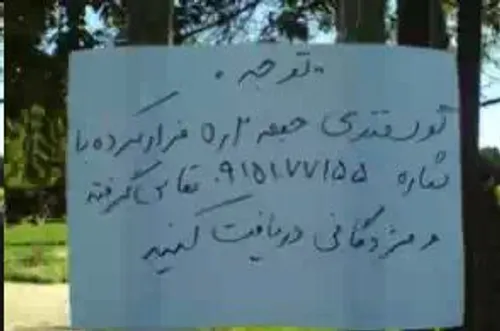 توجه
گوسفندی جمعه ۵/۲ فرار کرده با
شماره ۰۹۱۵۱۷۷۱۵۵ تماس گرفته
و مژدگانی دریافت کنید